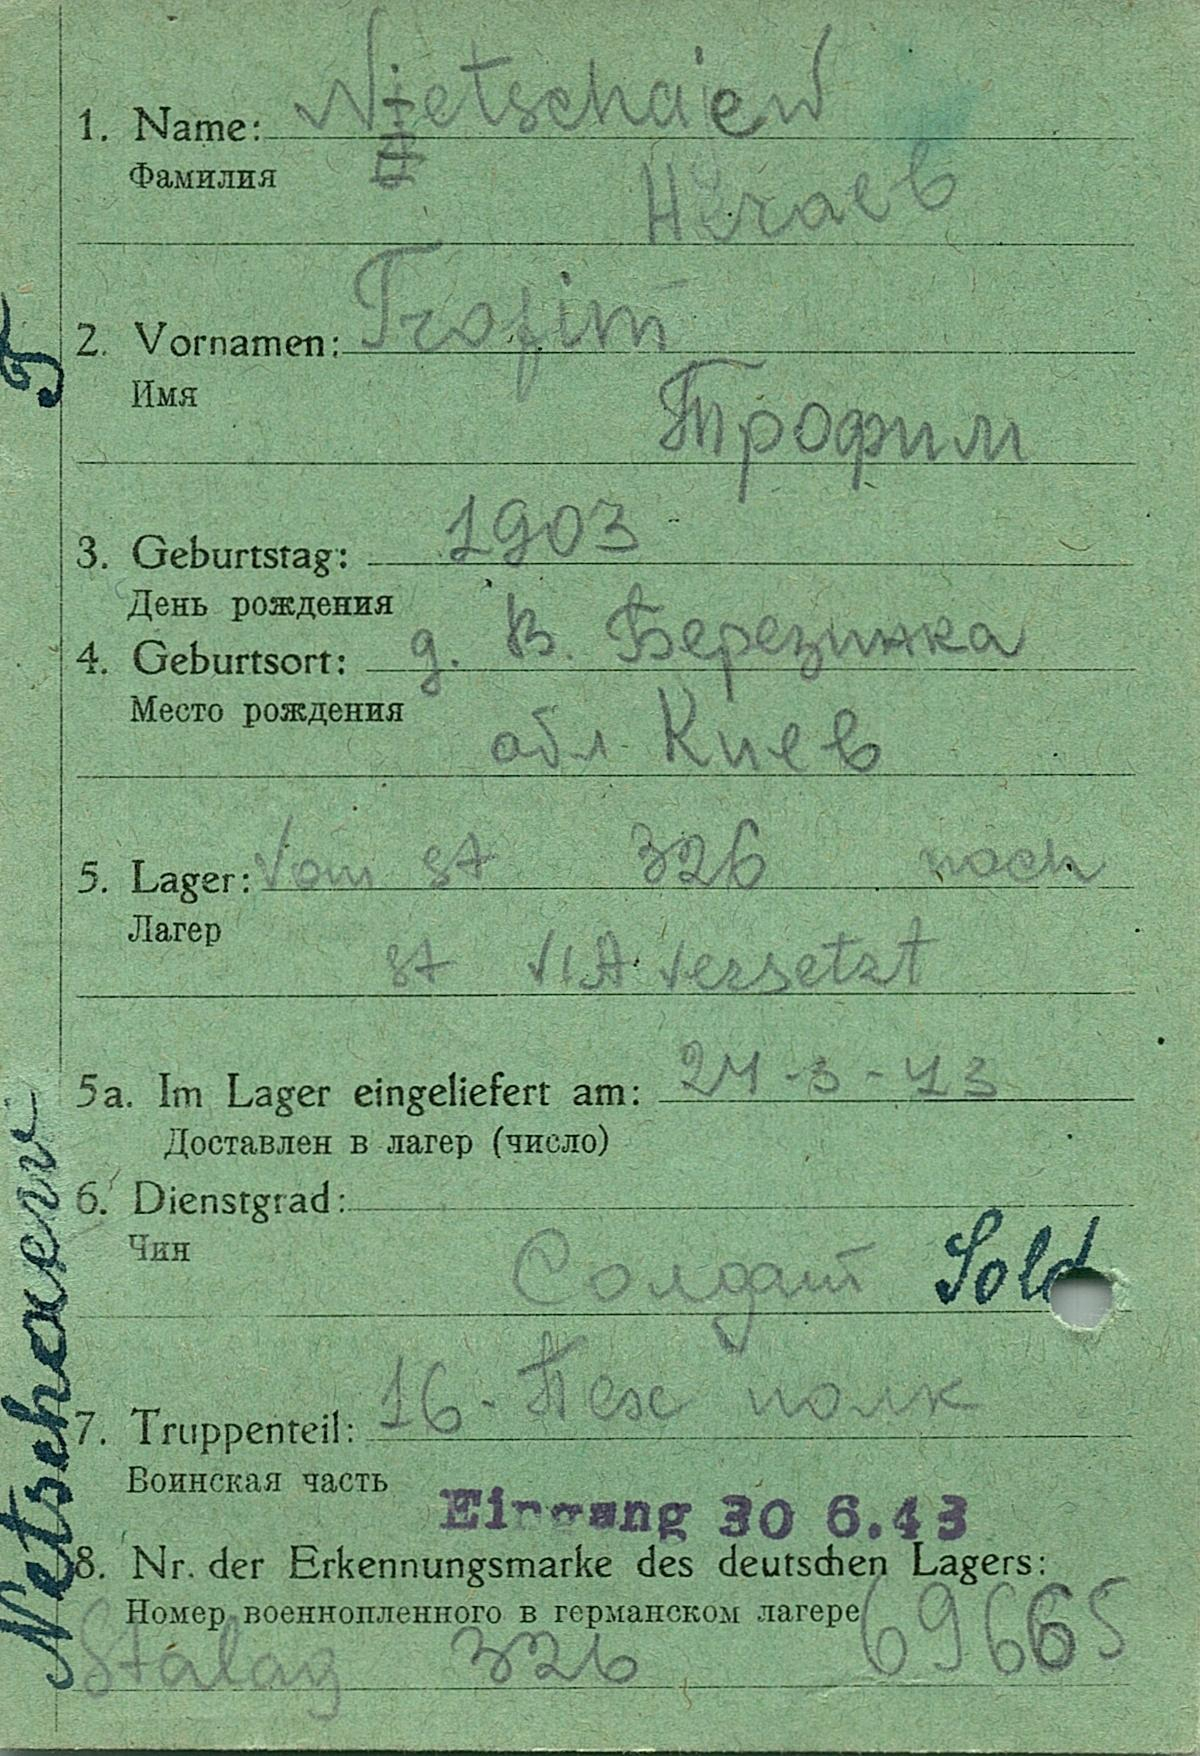 1. Name: Nietschaiew
Фамилия
Нечаев
2. Vornamen: Trofim
Имя
Трофим
3. Geburtstag: 1903
День рождения
4. Geburtsort: д. В. Березинка
Место рождения
обл Киев
5. Lager: Vom St 326 nach
Лагер
St VIA versetzt
5a. Im Lager eingeliefert am: 24-3-43
Доставлен в лагер (число)
6. Dienstgrad:
Чин
Солдат Sold
7. Truppenteil: 16-Пех полк
Воинская часть
Eingang 30 6.43
8. Nr. der Erkennungsmarke des deutschen Lagers:
Номер военнопленного в германском лагере 69665
Stalag 326
Netschaew T